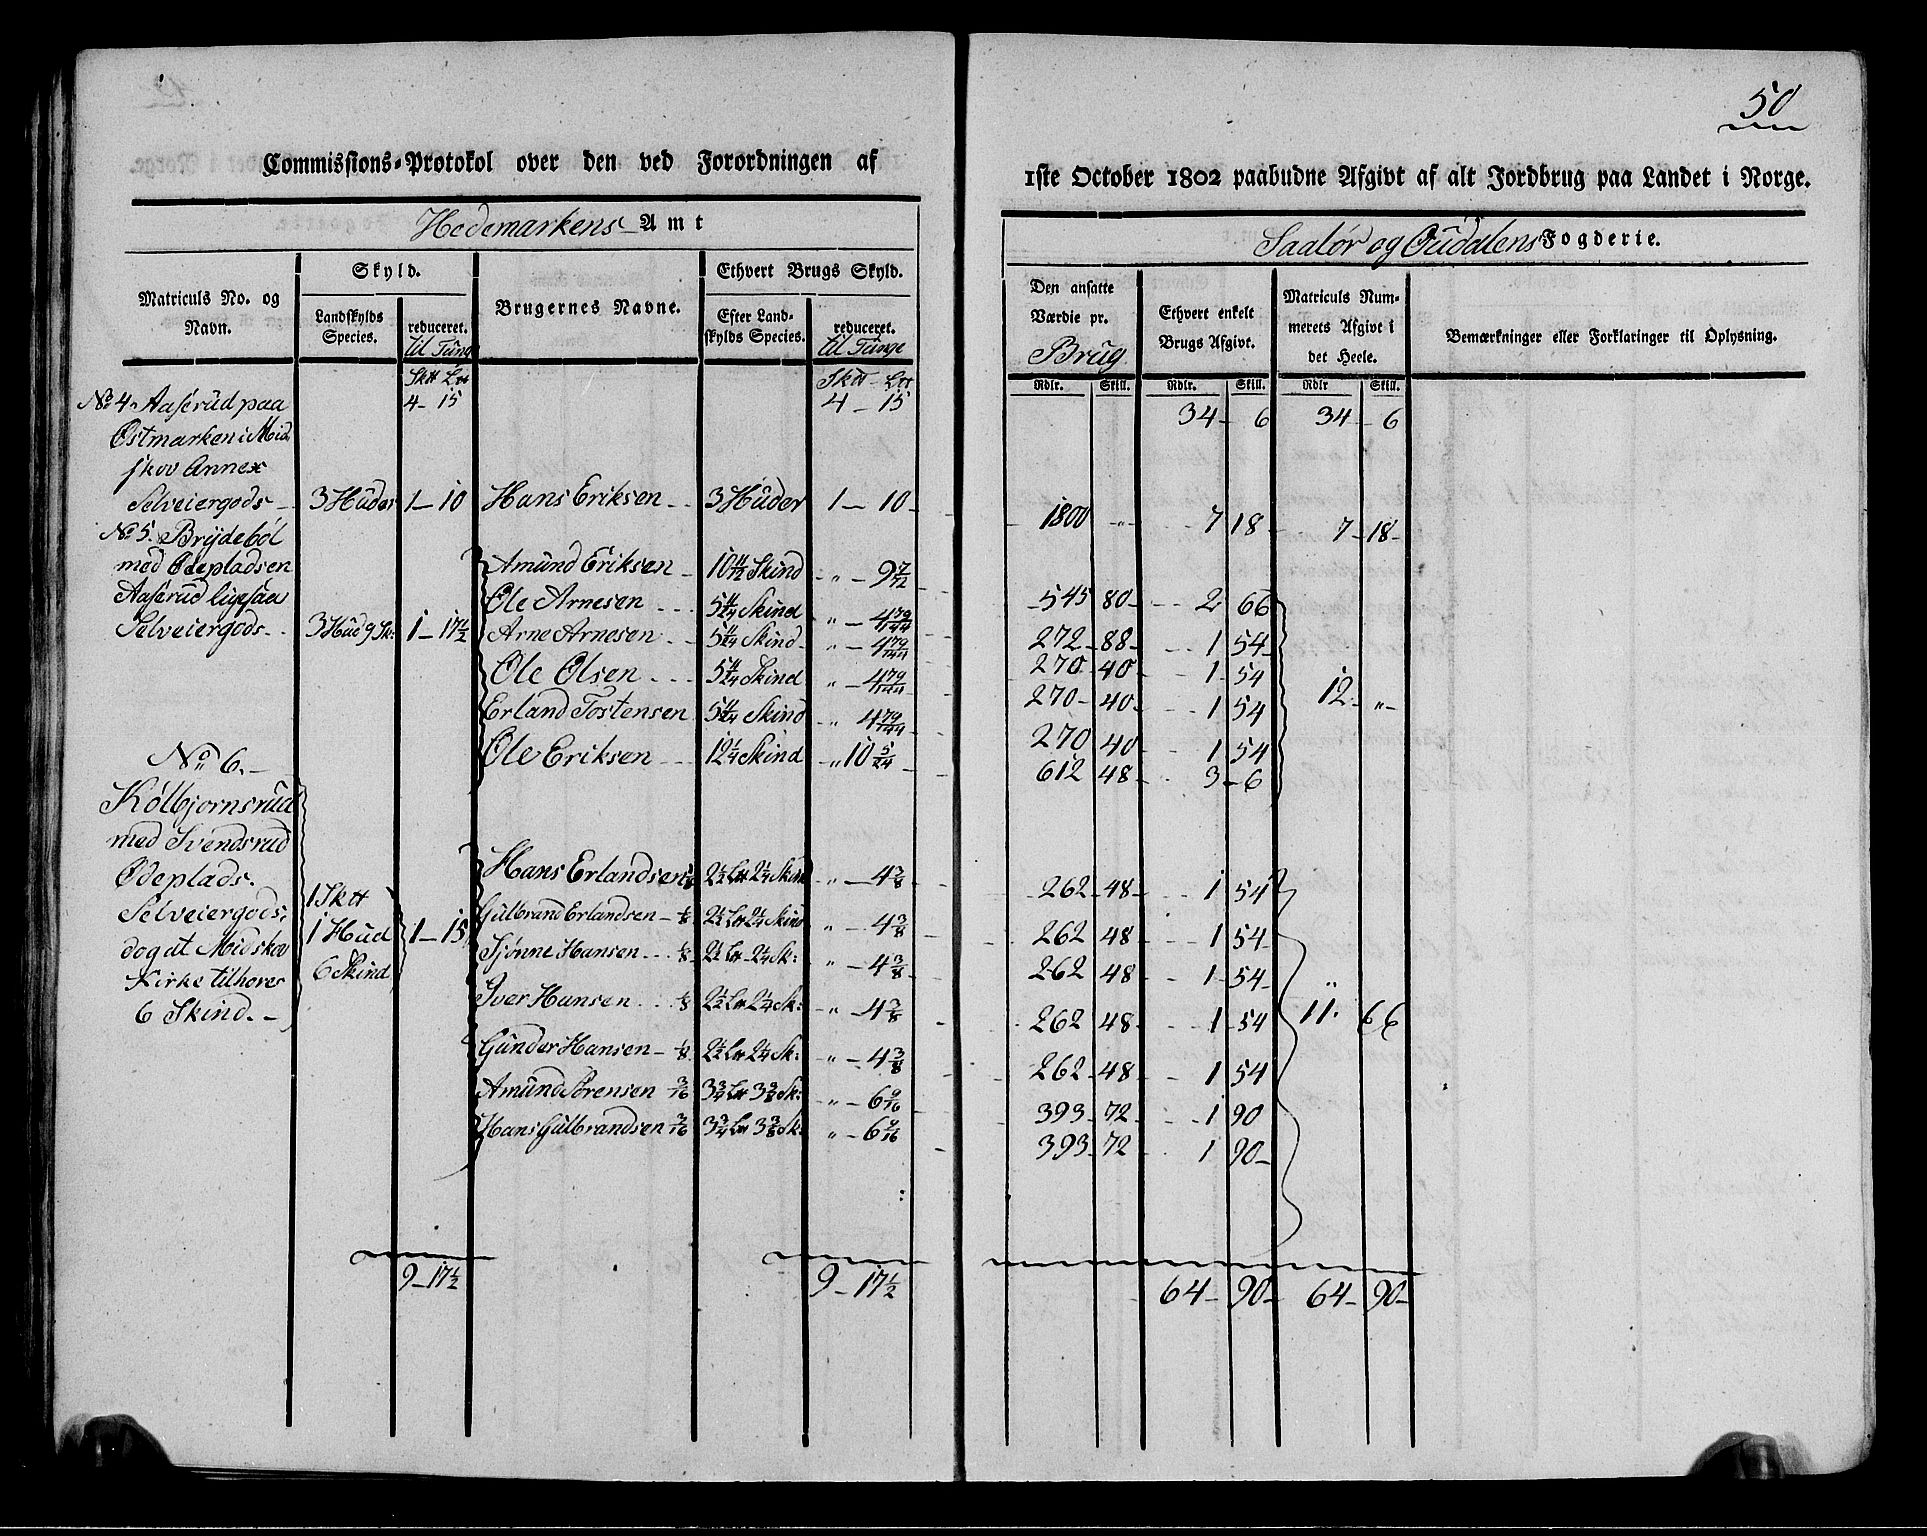 50
Commissions-Protokol over den ved Forordningen af
1ste October 1802 paabudne Afgivt af alt Jordbrug paa Landet i Norge.
Hedemarkens Amt
Saalør og Oudalens Fogderie.
Matriculs No. og Navn.
Skyld.
Landskylds Species.
reduceret. til Tunge
Brugernes Navne.
Ethvert Brugs Skyld.
Efter Landskylds Species.
reduceret. til Tunge
Den ansatte Værdie pr. Brug
Ethvert enkelt Brugs Afgivt.
Matriculs Nummerets Afgivt i det Heele.
Bemærkninger eller Forklaringer til Oplysning.
Rdlr. Skill. Rdlr. Skill. Rdlr Skill.
Sktt Lrr Sktt - Lrr
4 - 15 4 - 15 34 - 6 34 - 6
No 4. Aaserud paa
Østmarken i Mid
skov Annex
Selveiergods - 3 Huder 1 - 10 Hans Eriksen - - 3 Huder 1 - 10 - 1800 " - 7 18 - 7 - 18 -
No 5. Brydebøl
med Ødepladsen
Aaserud ligesaa
Selveiergods - - 3 Hud 9 Sk: 1 - 17 1/2
Amund Eriksen - 10 11/12 Skind " - 9 7/72 545 80 - 2 66
Ole Arnesen - - - 5 11/24 Skind " - 4 79/144 272 - 88 - 1 54
Arne Arnesen - - 5 11/24 Skind - " - 4 79/144 270 - 40 - 1 - 54
Ole Olsen - - - 5 11/24 Skind " - 4 79/144 270 - 40 - 1 54 12 - " -
Erland Tostensen 5 11/24 Skind " 4 79/144 270 40 - 1 54
Ole Eriksen - - - 12 1/4 Skind - " 10 5/24 612 48 - 3 - 6
No 6. -
Kolbjornsrud
med Svendsrud
Ødeplads.
Selveiergods,
dog at Midskov
Kirke tilhører
6 Skind. -
1 Sktt
1 Hud 1 - 15
6 Skind
Hans Erlandsen 1/8 2 1/2 Lrr 2 1/4 Skind " - 4 3/8 262 - 48 - 1 54
Gulbrand Erlandsen - 1/8 2 1/2 Lrr 2 1/4 Skind " - 4 3/8 262 48 - 1 54
Sjønne Hansen - - 1/8 2 1/2 Lrr - 2 1/4 Sk: " - 4 3/8 262 48 - 1 - 54 "
Iver Hansen - - - 1/8 2 1/2 Lrr 2 1/4 Sk: " - 4 3/8 262 48 - 1 - 54 11. 66
Gunder Hansen - 1/8 2 1/2 Lrr 2 1/4 Sk: " - 4 3/8 262 - 48 - 1 54
Amund Sørensen 3/16 3 3/4 Lrr 3 3/8 Sk: " - 6 9/16 393 - 72 - 1 90
Hans Gulbrandsen 3/16 3 3/4 Lrr 3 3/8 Sk: " - 6 9/16 393 - 72 - 1 90 -
9 - 17 1/2 9 - 17 1/2 64 - 90 - 64 - 90 -